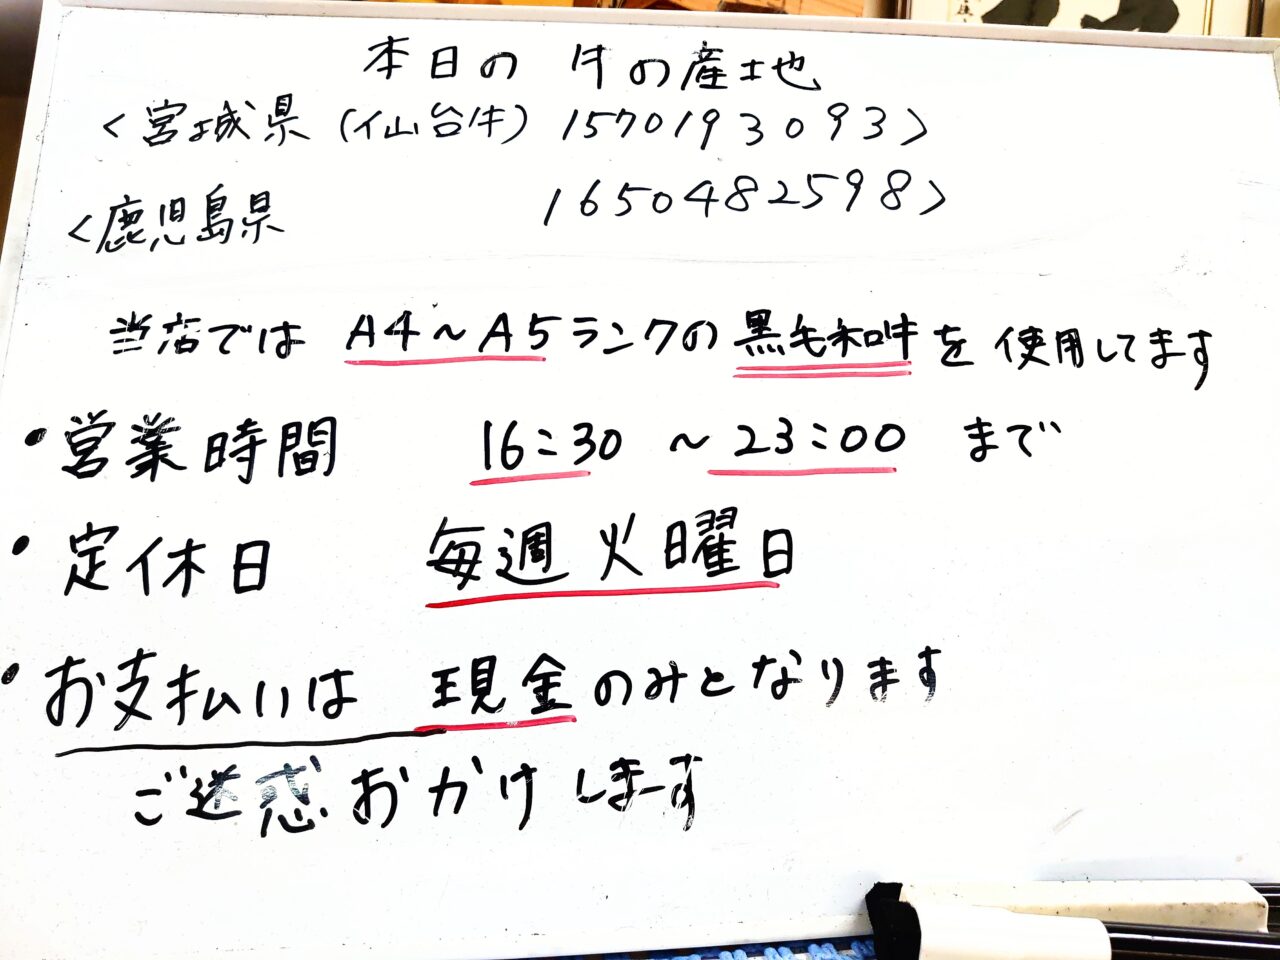 本日の牛の産地
<宮城県(仙台牛) 1570193093>
<鹿児島県 1650482598>
当店では A4〜A5ランクの黒毛和牛を使用してます
・営業時間 16:30 〜 23:00 まで
・定休日 毎週火曜日
・お支払いは 現金のみとなります
ご迷惑おかけしまーす